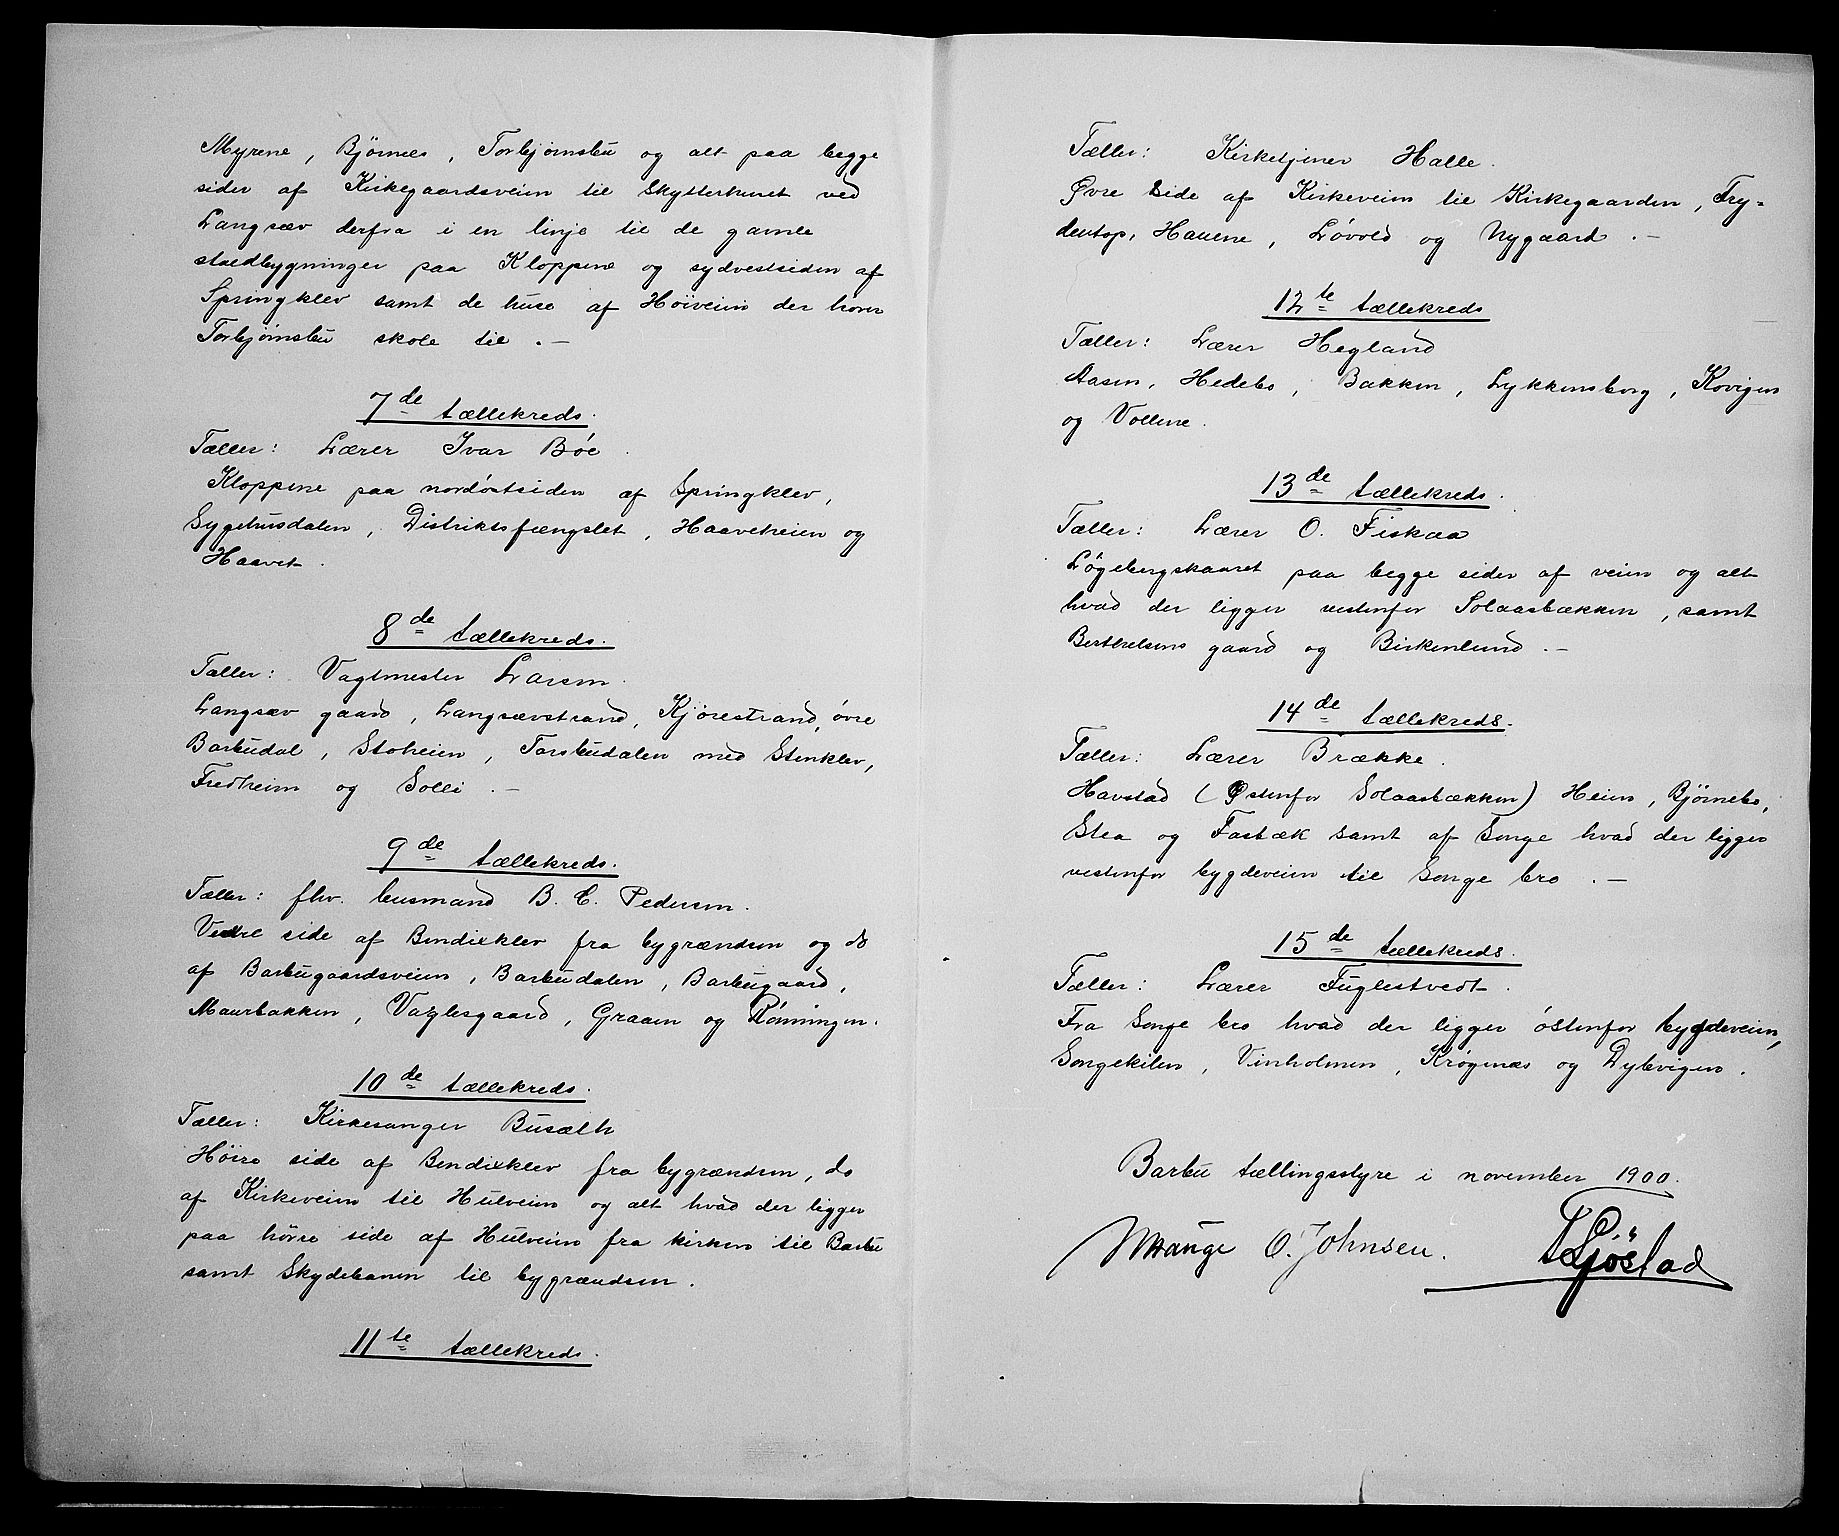 Myrene, Bjørnes, Torbjørnsbu og alt paa begge
sider af Kirkegaardsveien til Skytterhuset ved
Langsæv derfra i en linje til de gamle
staldbygninger paa Kloppene og sydvestsiden af
Springklev samt de huse af Høiveien der hører
Torbjørnsbu skole til .—
7de tællekreds.
Tæller: Lærer Ivar Bøe.
Kloppene paa nordøstsiden af Springklev,
Sygehusdalen, Distriktsfængslet, Haaveheien og
Haavet.
8de tællekreds.
Tæller: Vagtmester Larsen.
Langsæv gaard, Langsævstrand, Kjørestrand, øvre
Barbudal, Stoheien, Torsbudalen med Stenklev,
Fredheim og Solli .—
9de tællekreds.
Tæller: fhv. husmand B. C. Pedersen.
side af Bendixklev fra bygrændsen og do
af Barbugaardsveien, Barbudalen, Barbugaard,
Maurbakken, Vagtesgaard, Graaen og Rønningen.
10de tællekreds.
Tæller: Kirkesanger Busæth
Høire side af Bendixklev fra bygrændsen, do
af Kirkeveien til Hulveien og alt hvad der ligger
paa høire side af Hulveien fra kirken til Barbu
samt Skydebanen til bygrændsen.
11te tællekreds.
Tæller: Kirketjener Halle.
Øvre side af Kirkeveien til Kirkegaarden, Fry-
dentop, Hauene, Løvold og Nygaard .—
12te tællekreds
Tæller: Lærer Hegland
Aasen, Hedebo, Bakken, Lykkensborg, Kovigen
og Vollene.
13de tællekreds.
Tæller: Lærer O. Fiskaa
Løgebergskaaret paa begge sider af veien og alt
hvad der ligger vestenfor Solaasbækken, samt
Berthelsens gaard og Birkenlund .—
14de tællekreds.
Tæller: Lærer Brække.
Havstad (Østenfor Solaasbækken) Heien, Bjørnebo,
Stea og Fosbæk samt af Songe hvad der ligger
vestenfor bygdeveien til Songe bro .—
15de tællekreds.
Tæller: Lærer Fuglestvedt.
Fra Songe bro hvad der ligger østenfor bygdeveien,
Songekilen, Vinholmen, Krøgenæs og Dybvigen.
Barbu tællingsstyre i november 1900.
O. Johnsen. Sjöstad